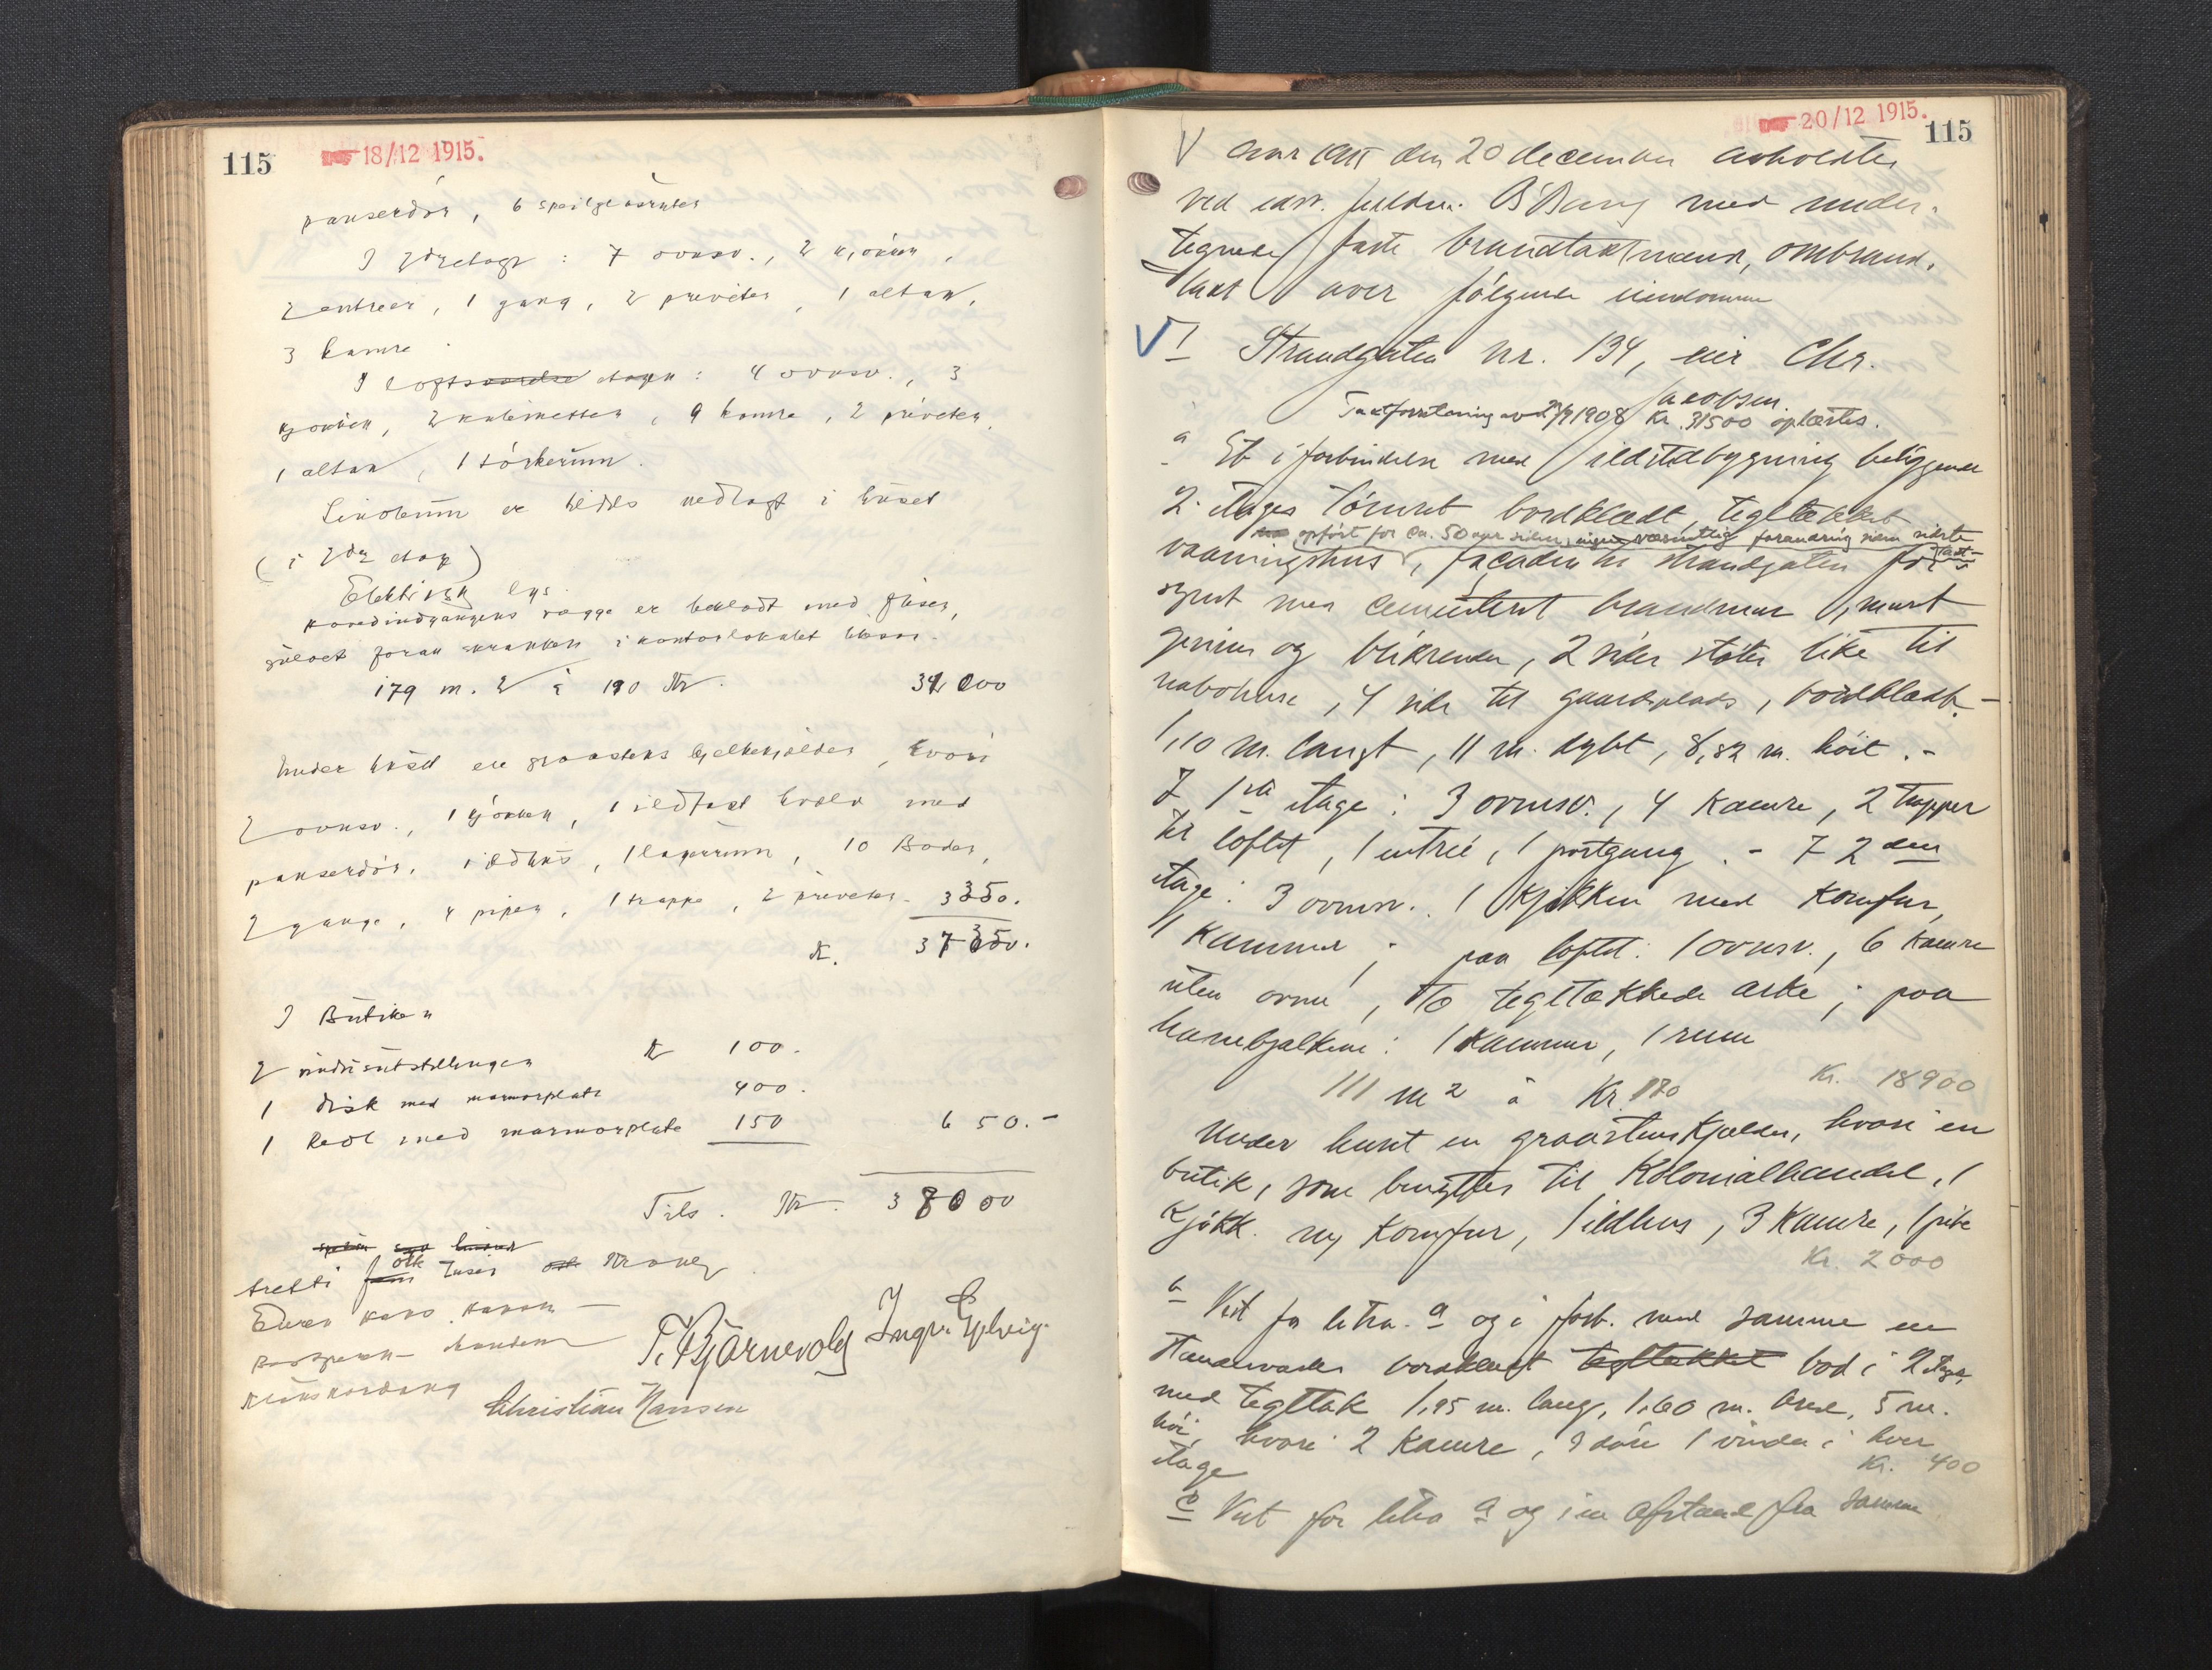 115 18/12 1915.
panserdör, 6 speilglasruter
I 2dre etage: 7 ovnsv., 2 kjökken,
2 entreer, 1 gang, 2 priveter, 1 altan,
3 kamre.
I loftsværelse etagen: 4 ovnsv., 3
kjökken, 2 kabinetter, 9 kamre, 2 priveter,
1 altan, 1 törkerum.
Linoleum er heldels nedlagt i huset
(i 2den etage)
Elektrisk lys
Hovedindgangens vægge er beklædt med fliser,
gulvet foran skranken i kontorlokalet likesaa.
179 m. 2 à 190 Kr. 34 000
Under huset er graastens hjelkekjælder, hvori
2 ovnsv., 1 kjökken, 1 ildfast hvælv med
panserdör, 1 ildhus, 1 lagerrum, 10 Boder,
2 gange, 4 piper, 1 trappe, 2 priveter. 3350.
Kr. 37350.
I Butiken
2 vindusutstillinger Kr 100.
1 disk med marmorplate 400.
1 Reol med marmorplate 150 650.-
Tils. Kr. 38000
tretti fem otte tusen Kroner
T. Bjärnevolg Ingv. Eplvig.
Christian Hansen
20/12 1915. 115
Aar 1915 den 20 december avholdtes
ved edsv. fuldm. B Bang med under-
tegnede faste brandtakstmænd, ombrand-
takst over følgende eiendomme
1 Strandgaten nr. 134, eier Chr.
Jacobsen.
Takstforretning avd 23/9 1908 Kr. 31500 oplæstes.
a Et i forbindelse med ildstedbygning beliggende
2 etages tömret bordklædt, tegltækket
opfört for ca. 50 aar siden, ingen væsentlig forandring siden sidste takst
vaaningshus, facaden til Strandgaten for-
synt med cementeret brandmur, muret
gesims og blikrender, 2 sider støter like til
nabohuse, 4 side til gaardsplads, bordklædt.-
1,10 m. langt, 11 m. dybt, 8,82 m. höit.-
I 1ste etage: 3 ovnsv., 4 kamre, 2 trapper
til loftet, 1 entrée, 1 portgang.- I 2den
etage: 3 ovnsv., 1 kjøkken med komfur,
1 kammer; paa loftet: 1 ovnsv., 6 kamre
uten ovne, to tegltækkede arke; paa
hanebjælkene: 1 kammer, 1 rum
111 m2 à Kr. 170 Kr. 18900
Under huset en graastenskjælder, hvori en
butik, som benyttes til Kolonialhandel, 1
kjøkk. m/ komfur, 1 ildhus, 3 Kamre, 1 pibe
Kr. 2000
b Vest for litra. a og i forb. med samme en
standerværks bordklædt tegltækket bod i 2 etager
med tegltak 1,95 m. lang, 1,60 m. bred, 5 m.
höi, hvori 2 Kamre, 2 döre 1 vindu i hver
etage Kr. 400
c Vest for litra a og i en afstand fra samme